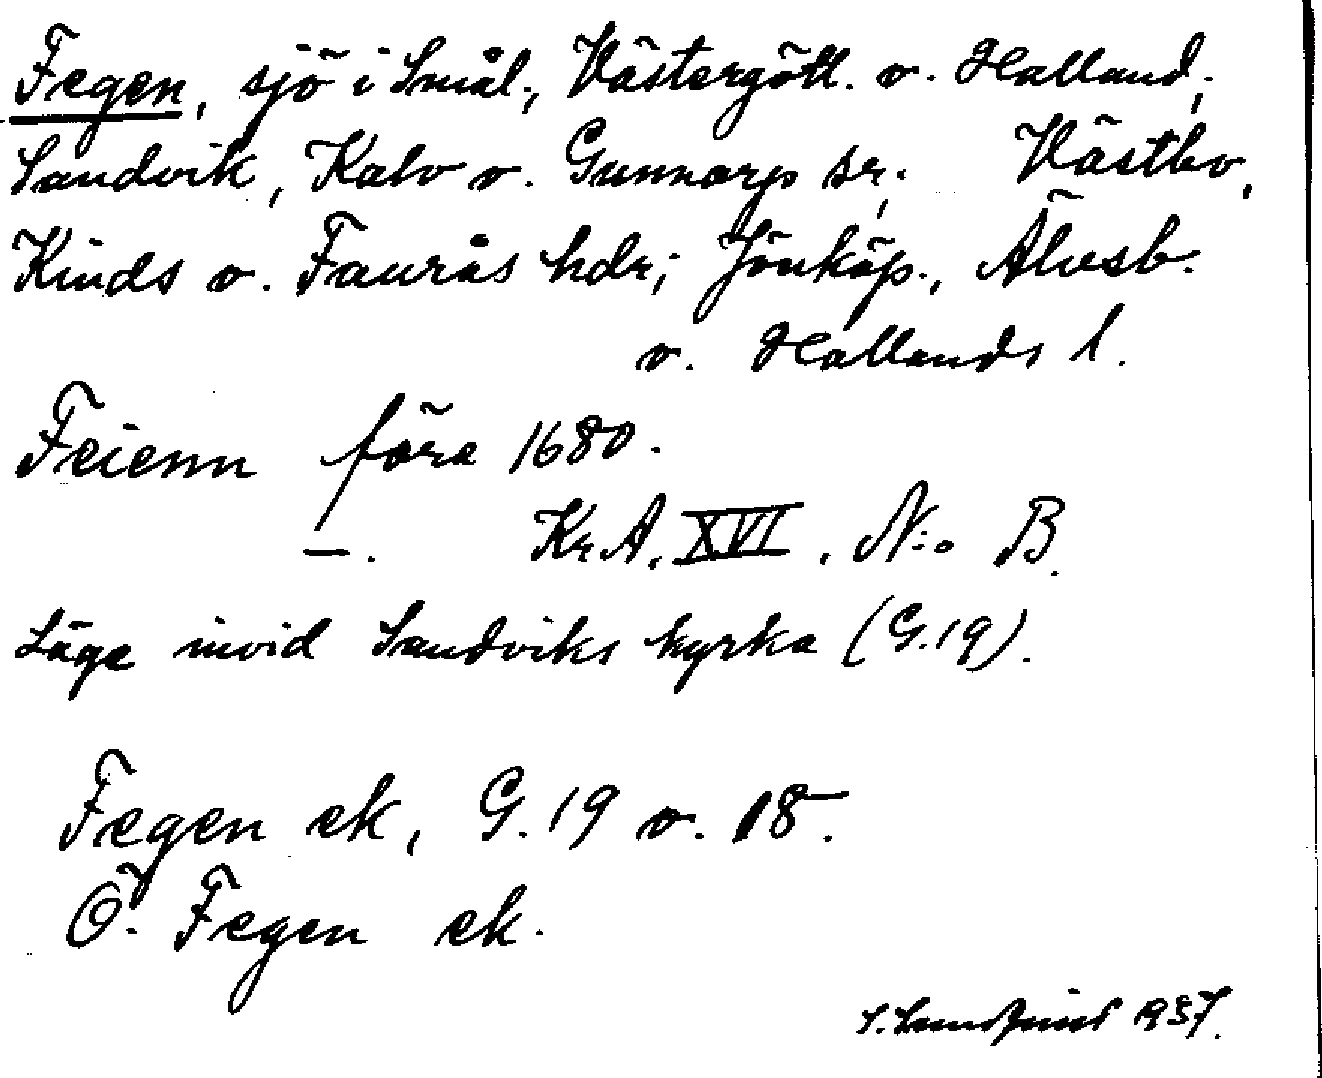 Fegen, sjö i Smål., Västergötl. o. Halland,
Sandvik, Kalv o. Gunnarp sr; Västbo,
Kinds o. Faurås hdr; Jönköp., Älvsb.
o. Hallands l.
Feienn före 1680.
—. KrA, XVI, N:o B.
Läge invid Sandviks kyrka (G.19).
Fegen ek, G.19 o. 18.
Ö. Fegen ek.
1937.